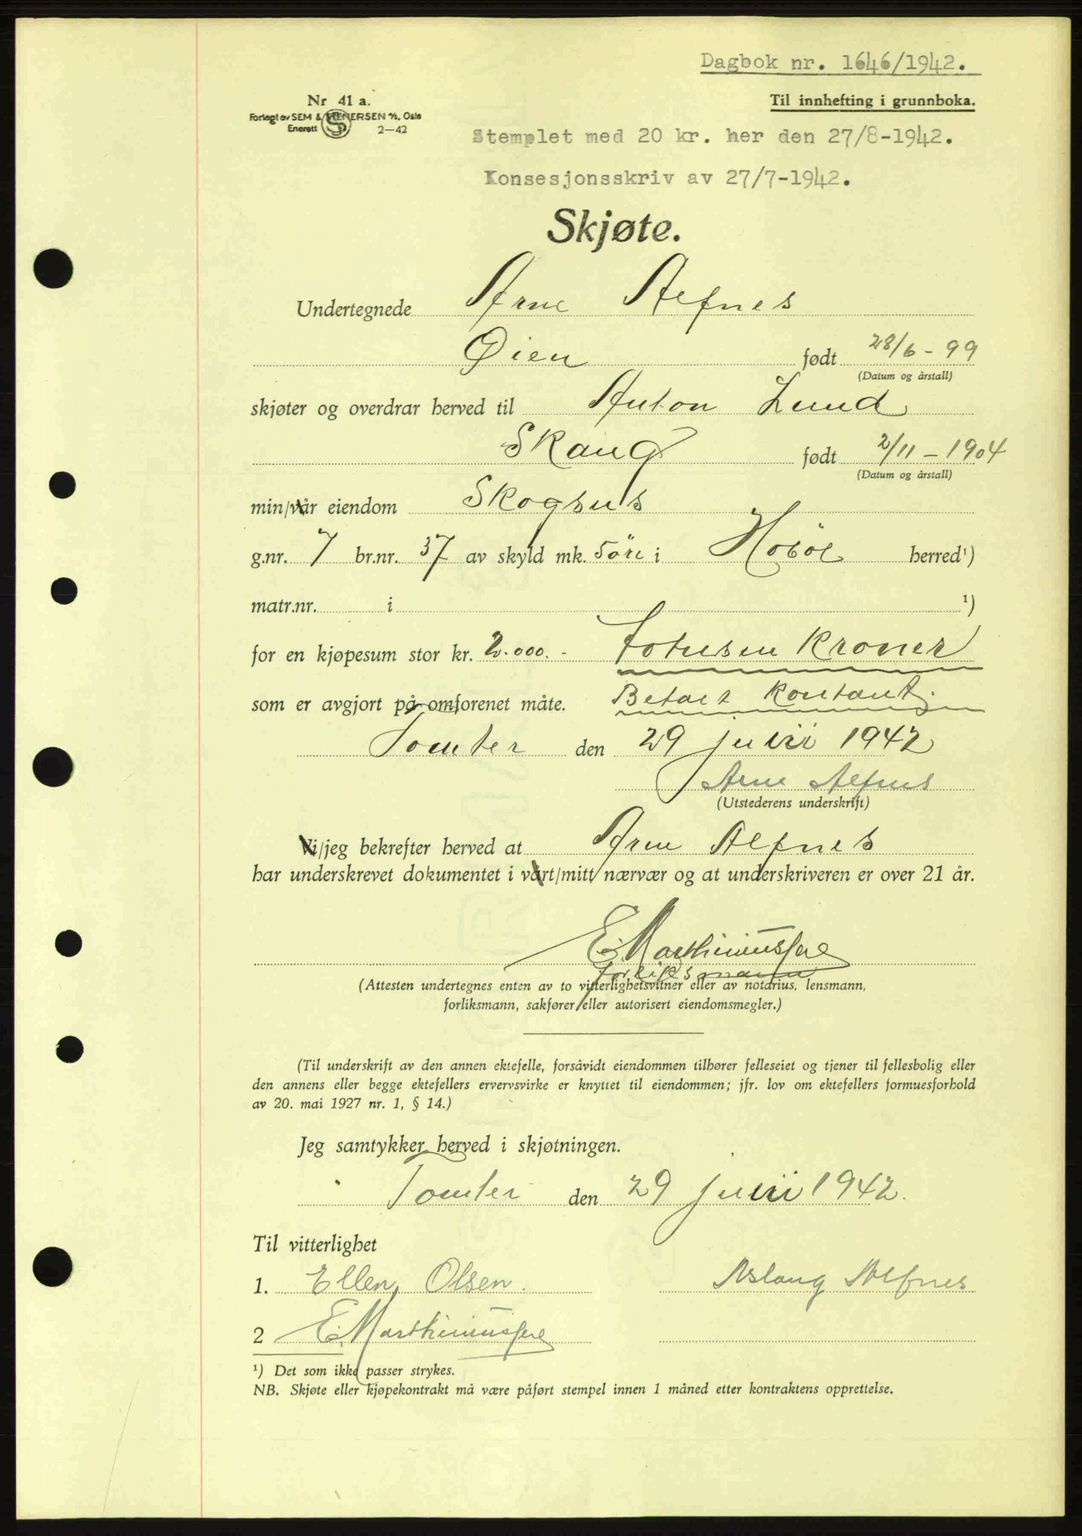 Dagbok nr. 1646/1942.
Nr 41 a.
Til innhefting i grunnboka.
Forlagt av SEM & STENERSEN A/S, Oslo
Enerett 2-42
Stemplet med 20 kr. her den 27/8-1942.
Konsesjonsskriv av 27/7-1942.
Skjøte.
Undertegnede Arne Alfnes
Øien født 28/6-99
(Datum og årstall)
skjøter og overdrar herved til Anton Lund
Skaug født 2/11-1904
(Datum og årstall)
min/vår eiendom Skogsus
g.nr. 7 br.nr. 37 av skyld mk. 5 øre i Hobøl herred¹)
matr.nr. i ¹)
for en kjøpesum stor kr. 2.000.- Totusen Kroner
som er avgjort på omforenet måte. Betalt kontant.
Tomter den 29 juni 1942
Arne Alfnes
(Utstederens underskrift)
Vi/jeg bekrefter herved at Arne Alfnes
har underskrevet dokumentet i vårt/mitt nærvær og at underskriveren er over 21 år.
E. Marthiniussen
forliksmann
(Attesten undertegnes enten av to vitterlighetsvitner eller av notarius, lensmann,
forliksmann, sakfører eller autorisert eiendomsmegler.)
(Til underskrift av den annen ektefelle, forsåvidt eiendommen tilhører felleseiet og tjener til fellesbolig eller
den annens eller begge ektefellers ervervsvirke er knyttet til eiendommen; jfr. lov om ektefellers formuesforhold
av 20. mai 1927 nr. 1, § 14.)
Jeg samtykker herved i skjøtningen.
Tomter den 29 juni 1942.
Til vitterlighet
1. Ellen Olsen. Aslaug Alfnes
2 E. Marthiniussen
¹) Det som ikke passer strykes.
NB. Skjøte eller kjøpekontrakt må være påført stempel innen 1 måned etter kontraktens opprettelse.